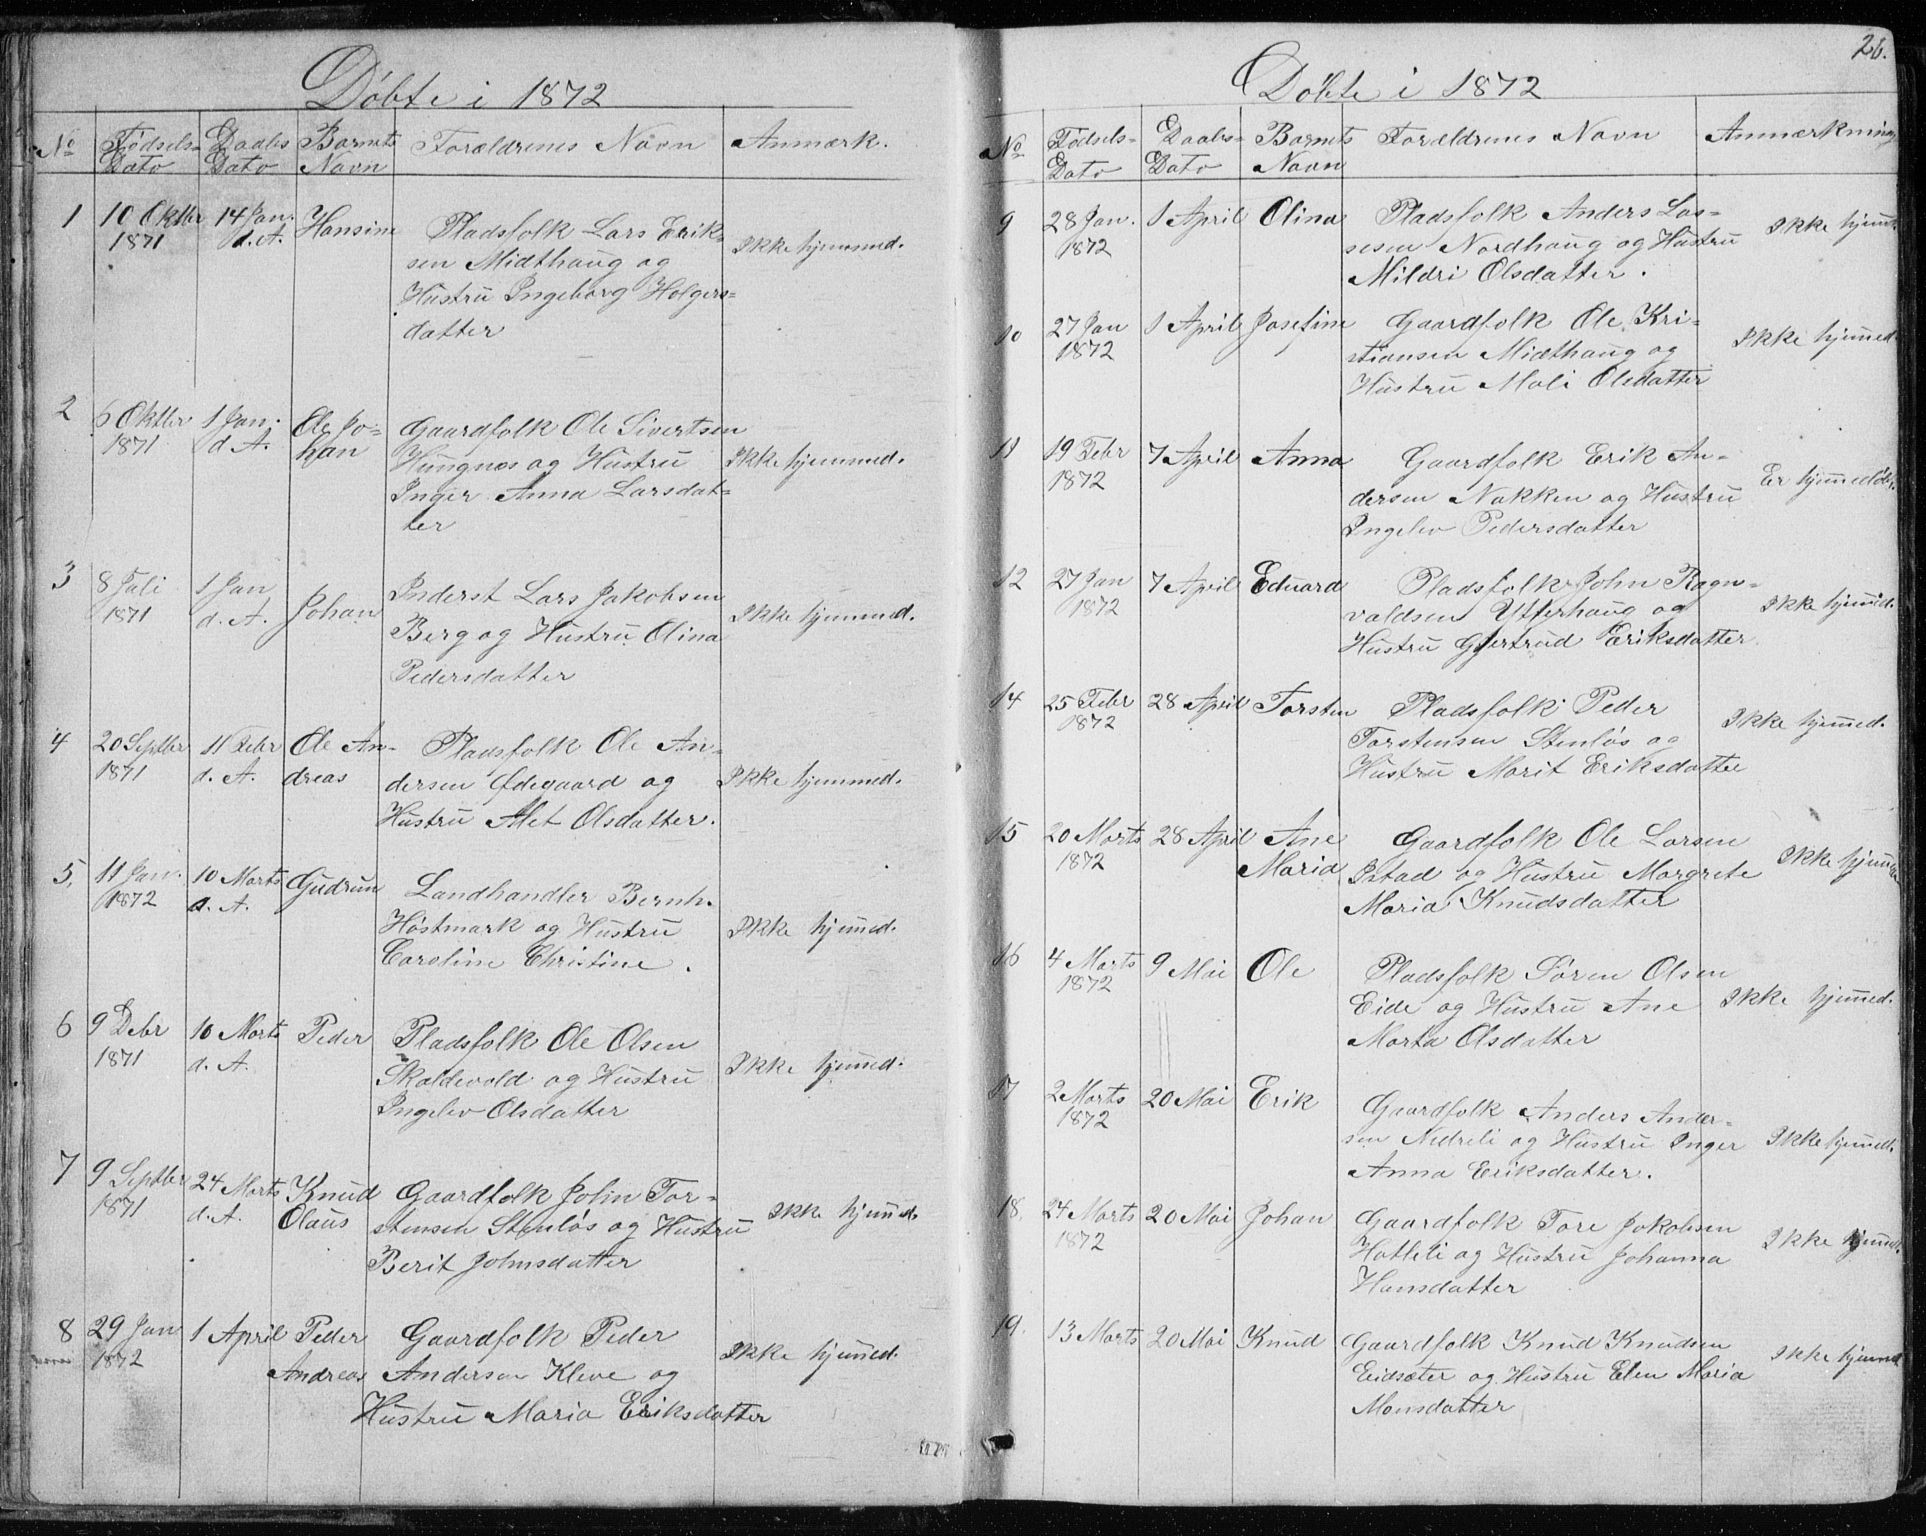 Døbte i 1872
No Fødsels- Daabs Barnets Forældrenes Navn Anmærk.
Dato Dato Navn
1 10 Oktbr 14 Jan. Hansine Pladsfolk Lars Erik-
1871 d. A. sen Midthaug og Ikke hjemmed.
Hustru Ingeborg Holgers-
datter
2 6 Oktber 1 Jan. Ole Jo- Gaardfolk Ole Sivertsen
1871 d. A. han Hungnes og Hustru Ikke hjemmed.
Inger Anna Larsdat-
ter
3 8 Juli 1 Jan Johan Inderst Lars Jakobsen
1871 d. A. Berg og Hustru Olina Ikke hjemmed.
Pedersdatter
4 20 Septber 11 Febr Ole An- Pladsfolk Ole An-
1871 d. A. dreas dersen Ødegaard og Ikke hjemmed.
Hustru Alet Olsdatter.
5. 11 Jan. 10 Marts Gudrun Landhandler Bernh.
1872 d. A. Høstmark og Hustru Ikke hjemmed.
Caroline Christine.
6 9 Debr 10 Marts Peder Pladsfolk Ole Olsen
1871 d. A. Skoldevold og Hustru Ikke hjemmed.
Ingelev Olsdatter
7 9 Septber 24 Marts Knud Gaardfolk John Tor-
1871 d. A. Olaus stensen Stenløs og Hustru Ikke hjemmed.
Berit Johnsdatter
8 29 Jan 1 April Peder Gaardfolk Peder
1872 Andreas Andersen Kleve og Ikke hjemmed.
Hustru Maria Eriksdatter
26.
Døbte i 1872
No Fødsels- Daabs- Barnets Forældrenes Navn Anmærkning
Dato Dato Navn
9 28 Jan. 1 April Olina Pladsfolk Anders Las- Ikke hjem
1872 sesen Nordhaug og Hustru
Mildri Olsdatter.
10 27 Jan 1 April Josefine Gaardfolk Ole Kri-
1872 stiansen Midthaug og Ikke hjemmed.
Hustru Mali Olsdatter
11 19 Febr 7 April Anna Gaardfolk Erik An-
1872 dersen Nakken og Hustru Er hjemmedøbt.
Ingelev Pedersdatter
12 27 Jan 7 April Eduard Pladsfolk John Ragn-
1872 valdsen Ytterhaug og Ikke hjemmed.
Hustru Gjertrud Eriksdatter
14 25 Febr 28 April Torsten Pladsfolk Peder
1872 Torstensen Stenløs og Ikke hjemmed.
Hustru Marit Eriksdatter
15 20 Marts 28 April Ane Gaardfolk Ole Larsen
1872 Maria Istad og Hustru Margrete Ikke hjemmed
Maria Knudsdatter
16 4 Marts 9 Mai Ole Pladsfolk Søren Olsen
1872 Eide og Hustru Ane Ikke hjemmed.
Marta Olsdatter
17 2 Marts 20 Mai Erik Gaardfolk Anders Ander-
1872 sen Nedreli og Hustru Inger Ikke hjemmed.
Anna Eriksdatter.
18. 24 Marts 20 Mai Johan Gaardfolk Tore Jakobsen
1872 Hatleli og Hustru Johanna Ikke hjemmed.
Hansdatter
19. 13 Marts 20 Mai Knud Gaardfolk Knud Knudsen
Eidsæter og Hustru Elen Maria Ikke hjemmed
Monsdatter